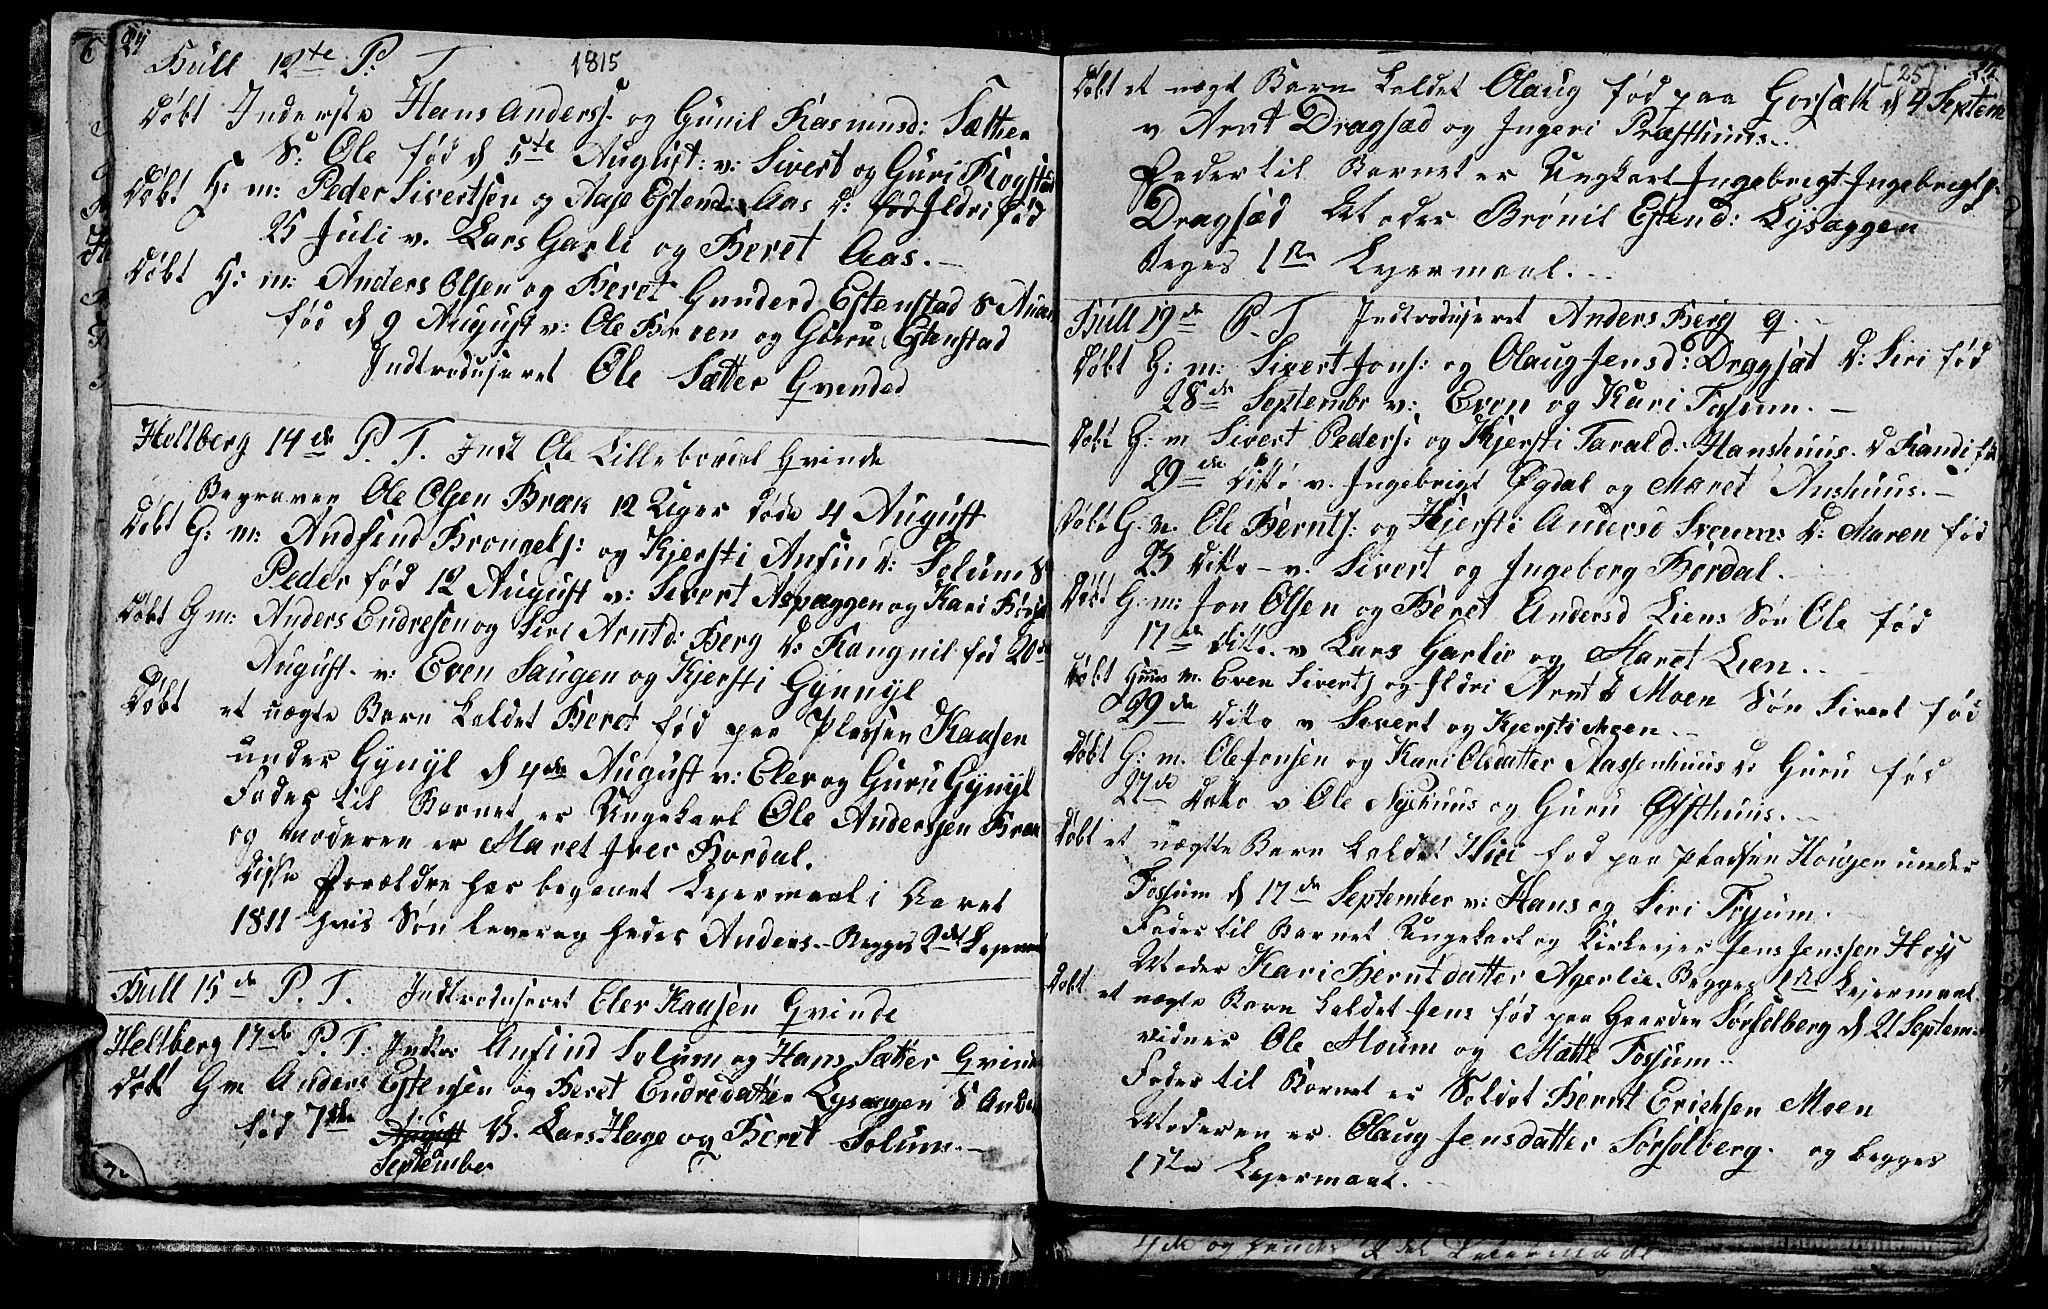 24
Büll 12te P. T. 1815
Döbt Inderste Hans Anderss: og Gunil Rasmusd: Sætter
S: Ole fød d 5te August: v: Sivert og Guri Rogstad
Döbt H: m: Peder Sivertsen og Aase Estend: Aas D: Ildri fød
25 Juli v. Lars Garli og Beret Aas.
Döbt H: m: Anders Olsen og Beret Gunderd Estenstad S
fød d 9 August v: Ole Broen og Guru Estenstad
Indtroduseret Ole Sætter Qvended
Heltberg 14de P. T. Ind Ole Lilleboviel Qvinde
Begraven Ole Olsen Bræk 12 Uger døde 4 August
Döbt G: m: Andfind Brongels: og Kjersti Anfin D: Solum S
Peder fød 12 August v: Sivert Aspaggen og Kari
Döbt G m: Anders Endresen og Siri Arntd: Berg D: Rangnil fød 20de
August. v: Even Haugen og Kjersti Gynnyl
Döbt et uægte Barn kaldet Beret fød paa Pladsen Kaasen
under Gynyl d 4de August v: Eler og Guru Gynyl
Fader til Barnet er Ungekarl Ole Anderssen Bræk
og moderen er Maret Iver Bordal.
Disse Forældre har begaaet Lejermaal i Aaret
1811 hvis Søn lever og heder Anders. Begges 2det Lejermaal
Büll 15de P. T. Indtroduseret Eler Kaasen Qvinde
Heltberg 17de P. T: Indtr: Anfind Solum og Hans Sætter Qvinde
Döbt G m Anders Estensen og Beret Endredatter Lysaggen S
fød 7de August V. Lars Hage og Beret Solum.
September
[25]
Döbt et uægt Barn kaldet Olaug fød paa Gorsæth d 4 Septem
v Arnt Dragsæd og Ingeri Præsthuus.
Fader til Barnet er Ungkarl Ingebrigt Ingebrigts:
Dragsæd Moder Brønil Estend: Lysaggen
Beges 1te Lejermaal.
Büll 19de P. T Indtroduseret Anders Berg q.
Döbt G: m: Sivert Jons: og Olaug Jensd: Dragsat D: Siri fød
28de Septembr v: Even og Kari Fossum.
Döbt G: m Sivert Peders: og Kjersti Tarald. Hanshuus. D Randi fød
29de Dito v. Ingebrigt Øgdal og Maret Aushuus.
Döbt G: m. Ole Bernts: og Kjersti Andersd D: Maren fød
23 Dito v. Sivert og Ingeborg Bordal.
Döbt G: m: Jon Olsen og Beret Andersd Liens Søn Ole fød
17de Dito v Lars Garlie og Maret Lien.
Döbt Huus m. Even Siverts og Ildri Arntd Moen Søn Sivert fød
29de Dito v Sivert og Kjersti Moen.
Döbt G: m. Ole Jonsen og Kari Olsdatter Aassenhuus D: Guru fød
27de Dito v Ole Nyehuus og Guru Østhuus.
Döbt et uægtte Barn kaldet Siri fød paa Pladsen Hougen under
Fossum d 17de September v: Hans og Siri Fossum.
Fader til Barnet Ungekarl og Jens Jenssen
Moder Kari Berntdatter Agerlie. Begges 1te Lejermaal.
Döbt et uægte Barn kaldet Jens fød paa Gaarden Sørsolberg d 21 Septem.
vidner Ole Moum og Mætte Fossum.
Fader til Barnet er Soldat Bernt Erichsen Moen
Moderen er Olaug Jensdatter Sørsolberg. og begges
1te Lejermaal.
4de og 2det Leiermaal